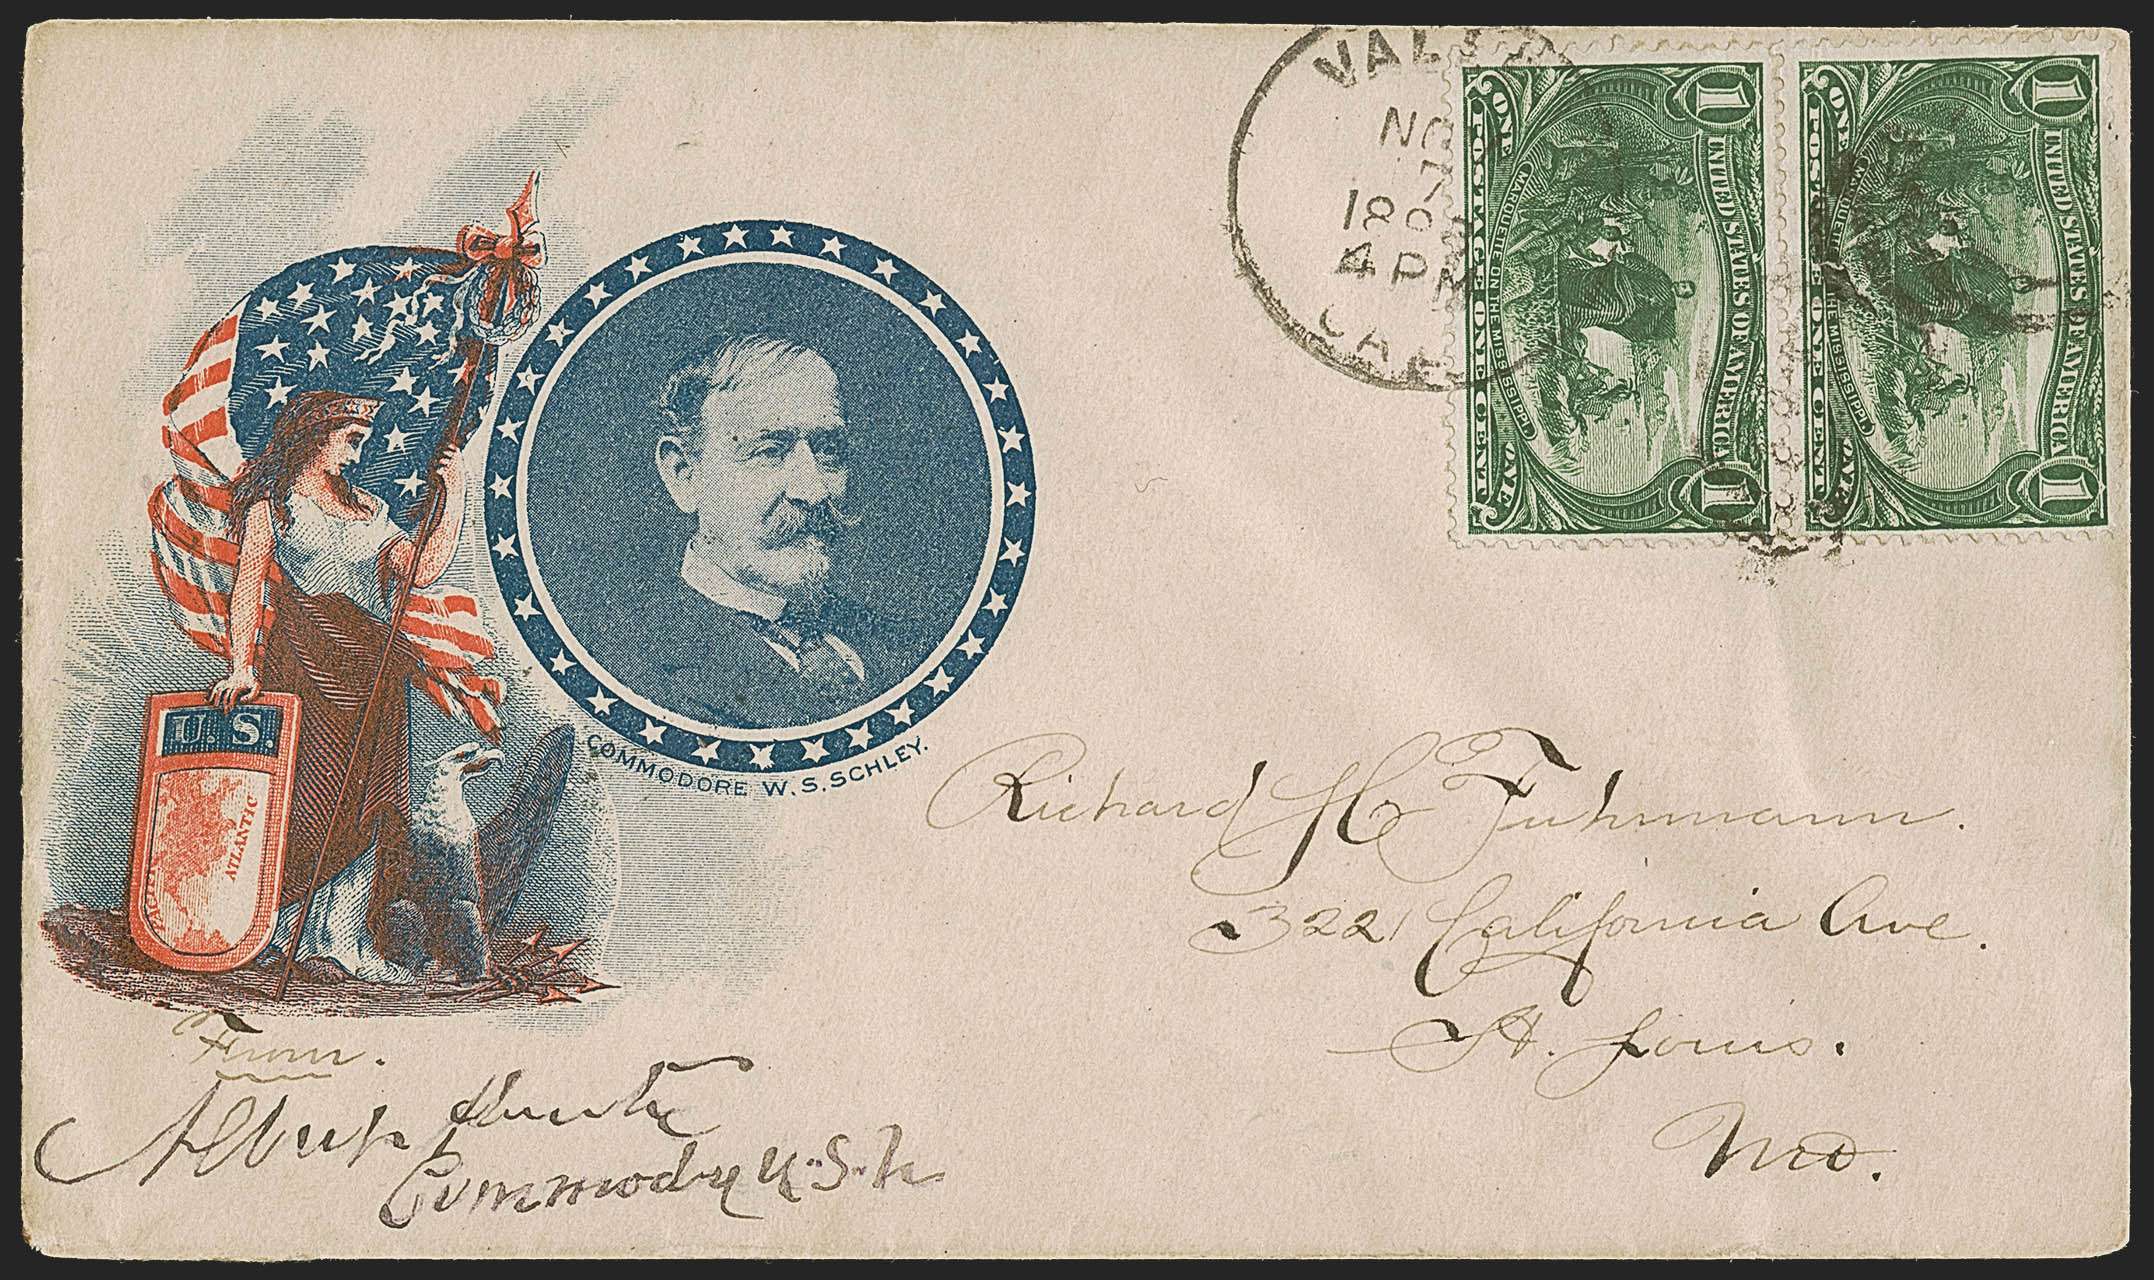 VALLE
NO
7
189
4 PM
CAL
1 UNITED STATES OF AMERICA 1
MARQUETTE ON THE MISSISSIPPI.
ONE POSTAGE ONE CENT ONE
1 UNITED STATES OF AMERICA 1
MARQUETTE ON THE MISSISSIPPI.
ONE POSTAGE ONE CENT ONE
U.S.
PACIFIC
ATLANTIC
COMMODORE W. S. SCHLEY.
Richard H Fuhrmann.
3221 California Ave.
St. Louis.
Mo.
From.
Albert
Commodr U.S.N